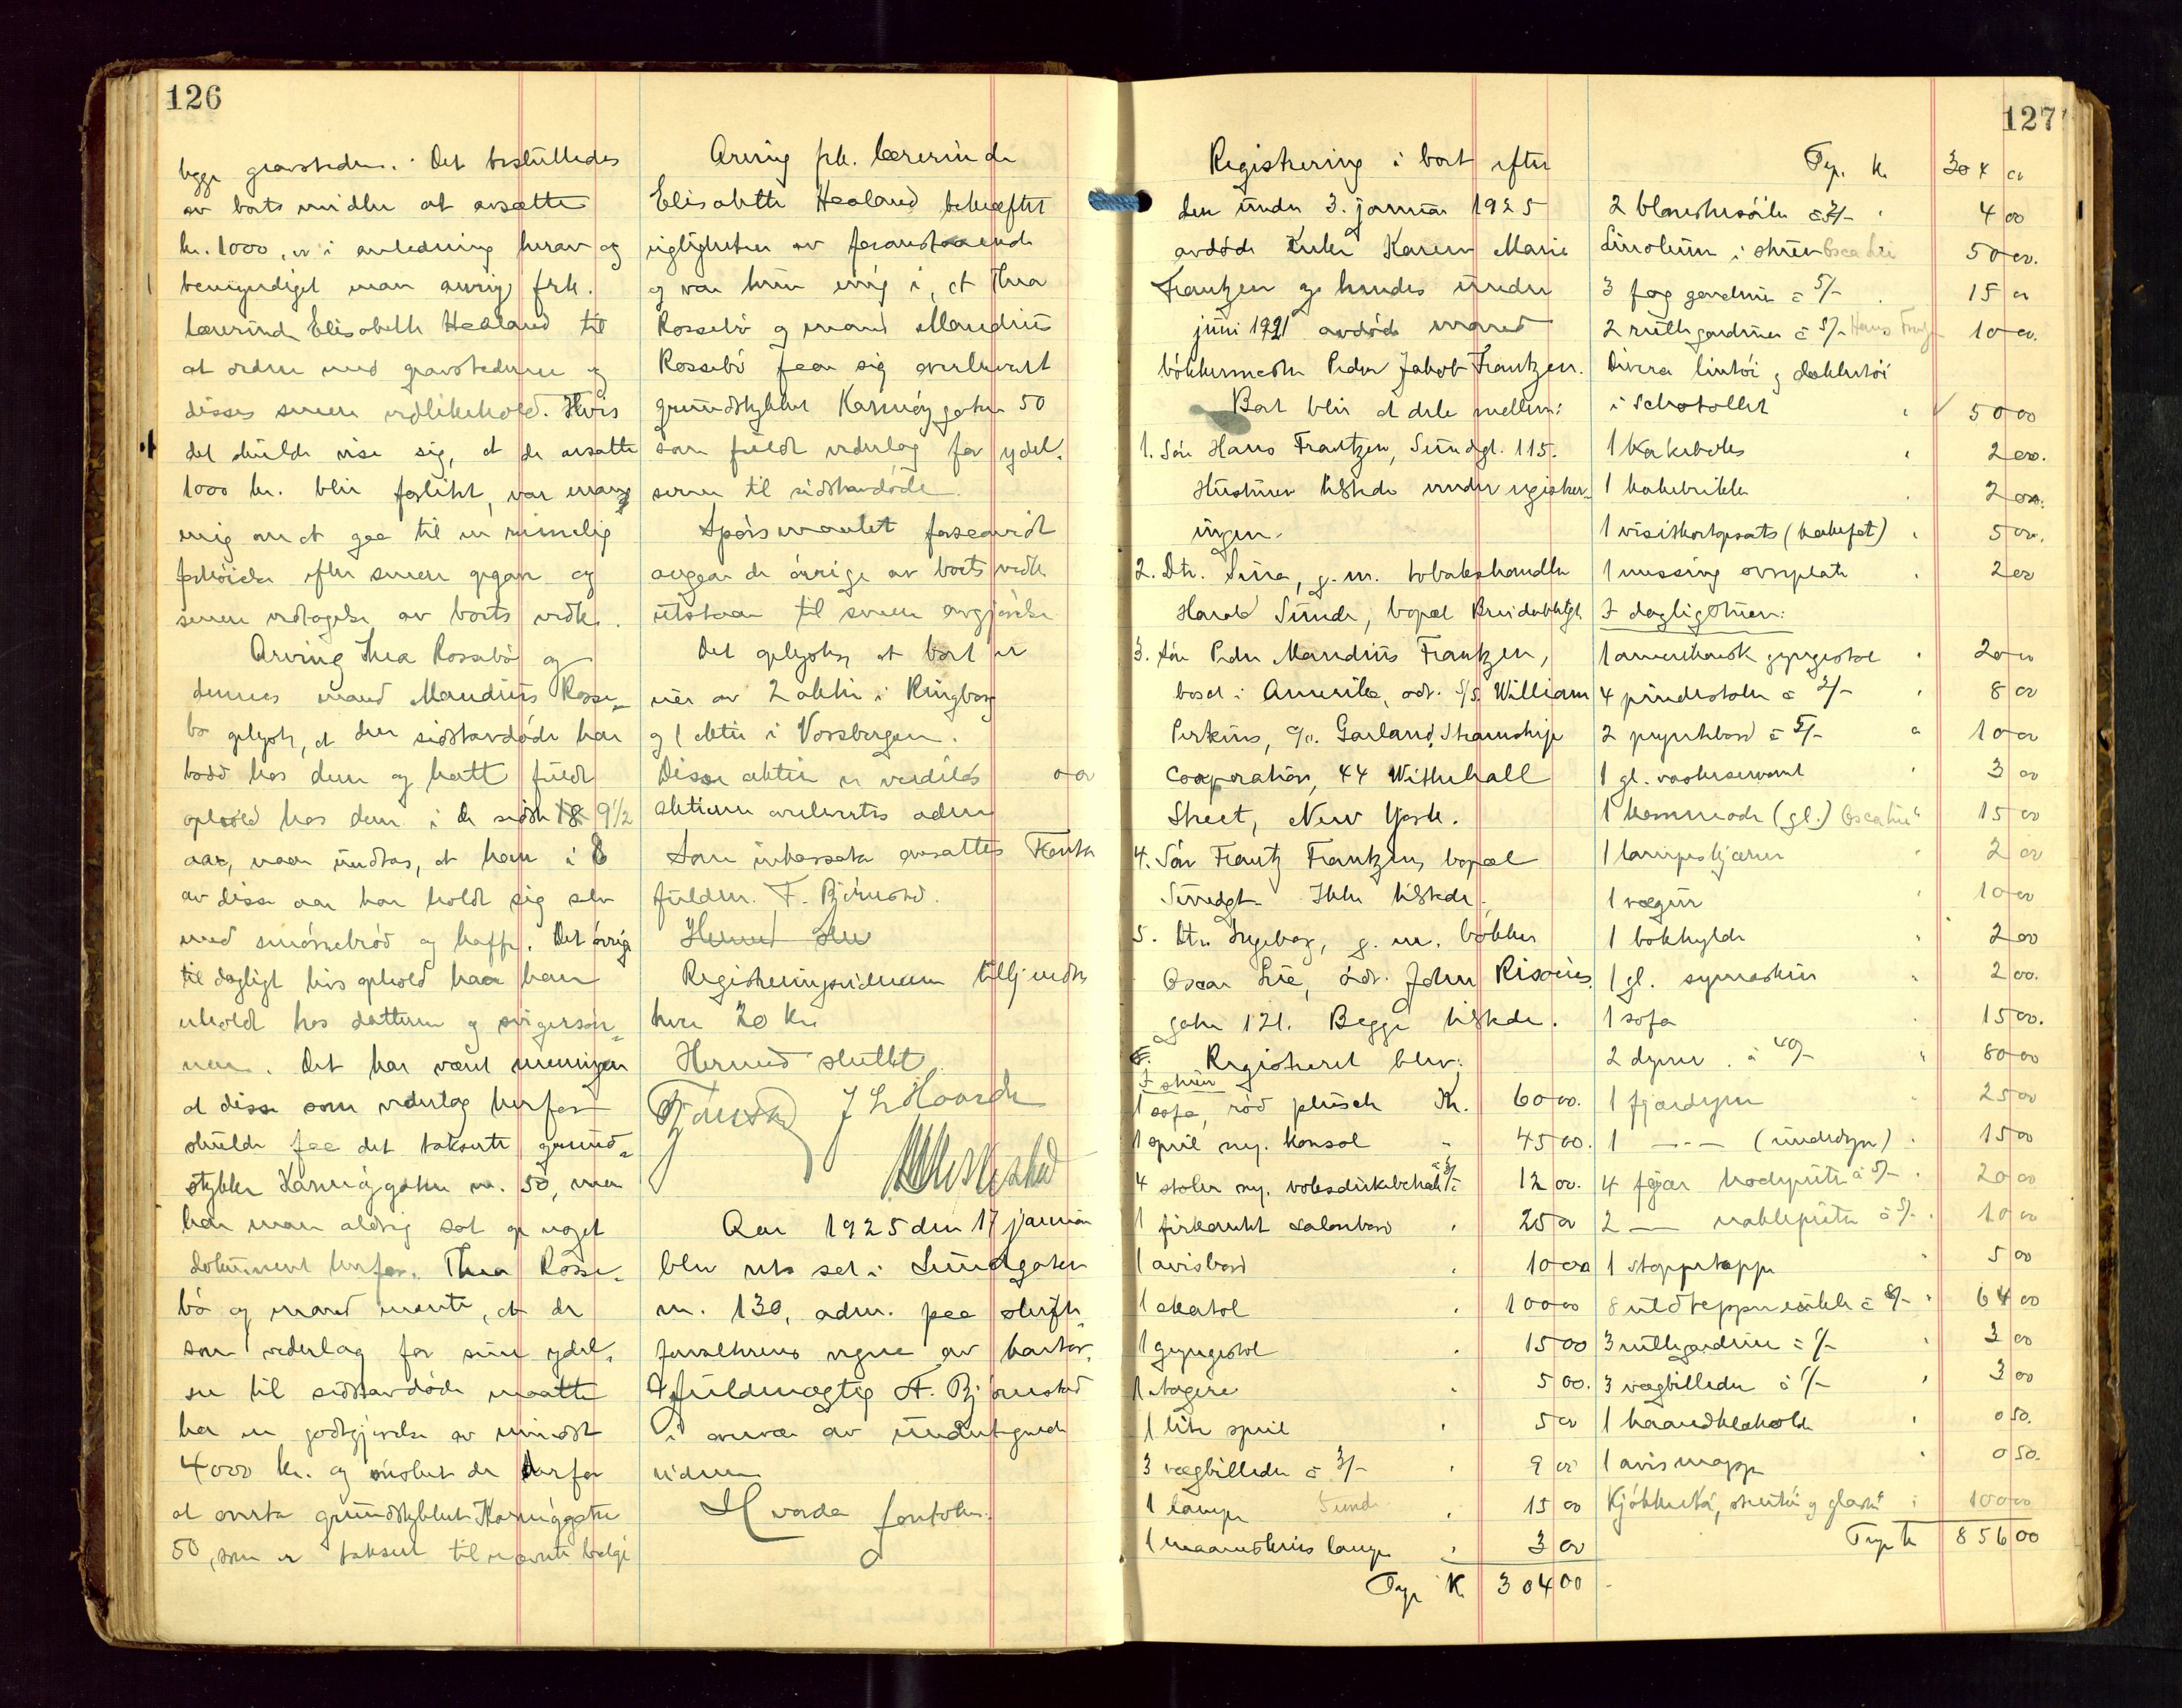 126
begge gravsteder. Det besluttedes
av boets midler at avsætte
kr. 1000, er i anledning herav og
bemyndiget man arving frk.
lærerinde Elisabeth Healand til
at ordne med gravstederne og
disses senere vedlikehold. Hvis
det skulde vise sig, at de avsatte
1000 kr. blir for litet, var man
enig om at gaa til en rimelig
forhøielse efter senere opgave og
senere vedtagelse av boets vedk.
Arving Thea Rossebø og
dennes mand Mandius Rosse-
bø oplyste, at den sidstavdøde har
bodd hos dem og hatt fuldt
ophold hos dem i de sidste 18 9 1/2
aar, naar undtas, at han i 8
av disse aar har holdt sig selv
med smørrebrød og kaffe. Det øvrige
til dagligt livs ophold har han
erholdt hos datteren og svigersøn-
nen. Det har været meningen
at disse som vederlag herfor
skulde faa det takserte grund-
stykke Karmøygaten nr. 50, men
har man aldrig sat op noget
dokument herfor. Thea Rosse-
bø og mand mente, at de
som vederlag for sine ydel-
ser til sidstavdøde maatte
ha en godtgjørelse av mindst
4000 kr. og ønsket de derfor
at overta grundstykket Karmøygaten
50, som er takseret til
Arving frk. lærerinde
Elisabeth Healand bekræftet
rigtigheten av foranstaaende
og var hun enig i, at Thea
Rossebø og mand Mandius
Rossebø faar sig overlevert
grundstykket Karmøygaten 50
som fuldt vederlag for ydel-
serne til sidstavdøde.
Spørsmaalet forsaavidt
angaar de øvrige av boets vedk.
utstaar til senere avgjørelse
Det oplystes at boet er
eier av 2 aktier i Ringborg
og 1 aktie i Vossbergen.
Disse aktier er verdiløs 0 00
aktierne avlevertes adm.
Som inkassator ansattes Kontor
fuldm. F. Bjørnstad.
Hermed slu
Registreringsvidnerne tilkjendtes
hver 20 kr.
Hermed sluttet
Bjørnstad J L Haarde
Aar 1925 den 17 januar
blev rets sat i Sundgaten
nr. 130, adm. paa skifte-
forvalterens vegne av kontor-
fuldmægtig F. Bjørnstad
i overvær av undertegnede
vidner
Hvorda foretokes:
127
Registrering i boet efter
den under 3. januar 1925
avdøde enke Karen Marie
Frantzen og hendes under
juni 1921 avdøde mand
bøkkermester Peder Jakob Frantzen.
Boet blir at dele mellem:
1. Søn Hans Frantzen, Sundgt. 115.
Hustruen tilstede under registrer-
ingen.
2. Dtr. Sina, g. m. tobakshandler
Harald Sunde, bopæl Breidablikgt
3. Søn Peder Mandius Frantzen,
bosat i Amerika, adr. S/S William
Perkins, c/o. Garland Steamship
Cooporation, 44 Withehall
Street, New York.
4. Søn Frantz Frantzen, bopæl
Sundgt. Ikke tilstede.
5. Dtr. Ingeborg, g. m. bøkker
Oscar Lie, adr. John Risøens
gate 121. Begge tilstede.
Registreret blev:
I stuen
1 sofa, rød plusch Kr. 60 00.
1 speil m. konsol " 45 00.
4 stoler m. voksdukbetræk à 3/- 12 00.
1 firkantet salonbord " 25 00
1 avisbord " 10 00
1 skatol " 100 00
1 gyngestol " 15 00
1 etagere " 5 00.
1 lite speil " 5 00
3 vægbilleder à 3/- " 9 00
1 lampe Sunde " 15 00
1 maaneskinslampe " 3 00
Tsp. Kr. 304 00
Tsp. kr. 304 00
2 blomstersøiler à 2/- " 4 00
Linoleum i stuen Oscar Lie 50 00.
3 fag gardiner à 5/- . 15 00
2 rullegardiner à 5/- Hans Frantzen 10 00.
Diverse lintøi og dekketøi
i Schatollet " 50 00
1 kakeboks " 2 00.
1 kakebrikke " 2 00.
1 visitkortopsats (kakefat) " 5 00.
1 messing ovnsplate " 2 00
I dagligstuen:
1 amerikansk gyngestol " 20 00
4 pindestoler à 2/- " 8 00
2 pyntebord à 5/- " 10 00
1 gl. vaskeservant " 3 00
1 kommode (gl.) Oscar Lie 15 00
1 lampeskjærm " 2 00
1 vægur " 10 00
1 bokhylde " 2 00
1 gl. symaskin " 2 00.
1 sofa " 15 00.
2 dyner à 40/- " 80 00
1 fjærdyne " 25 00
1 -"- (underdyne) " 15 00
4 fjær hodeputer à 5/- " 20 00
2 — nakkeputer à 5/- " 10 00
1 stoppeteppe " 5 00
8 uldtepper enkle à 8/- " 64 00
3 rullegardiner à 1/- " 3 00
3 vægbilleder à 1/- " 3 00
1 haandklæholder " 0 50.
1 avismappe " 0 50.
Kjøkkentøi, stentøi og glastøi " 100 00
Tsp kr 856 00